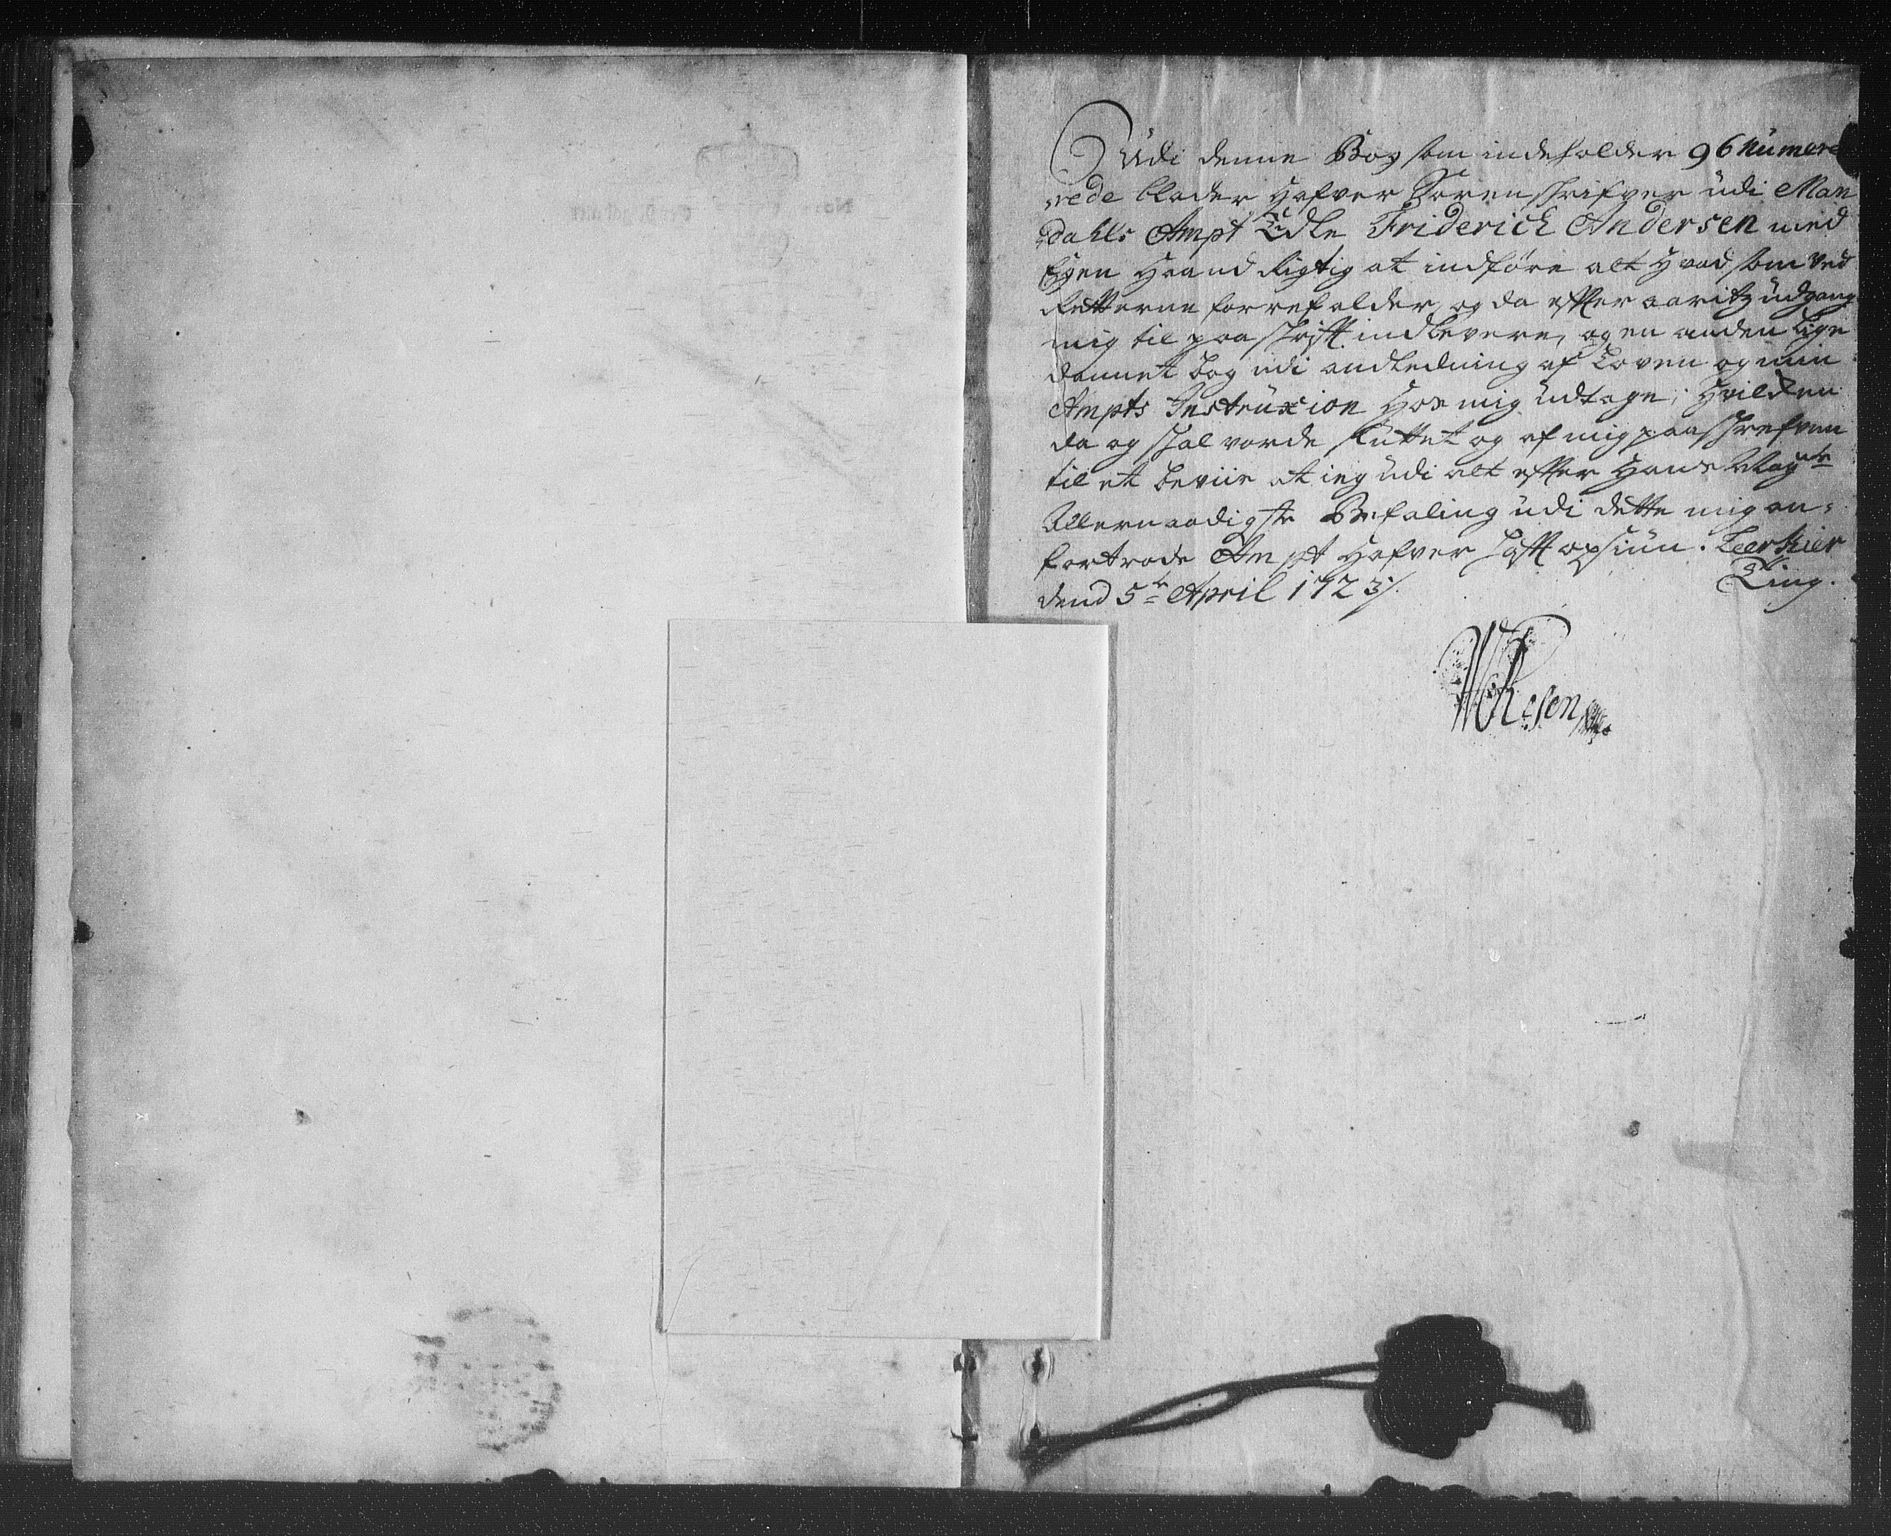 Udi denne Bog som indeholder 96 Numere
rede blader Hafver Sorenschrifver udi Man
dahls Ampt Edle Friderich Andersen med
Egen Haand Rigtig at indføre alt Hvad som ved
Retterne forrefalder, og da effter aaritz udgang
mig til paaskrifft indlevere, og en anden lige
dannet bog udi andledning af Loven og min
Ampts Instruxion Hos mig udtage; Hvilken
da og skal vorde sluttet og af mig paaskrefven
til et beviis at ieg udi alt effter Hans May:ts
Allernaadigste Befaling udi dette mig an-
fortrode Ampt Hafver hafft opsiun. Leerkier
dend 5te April 1723/. Ting.
Resen